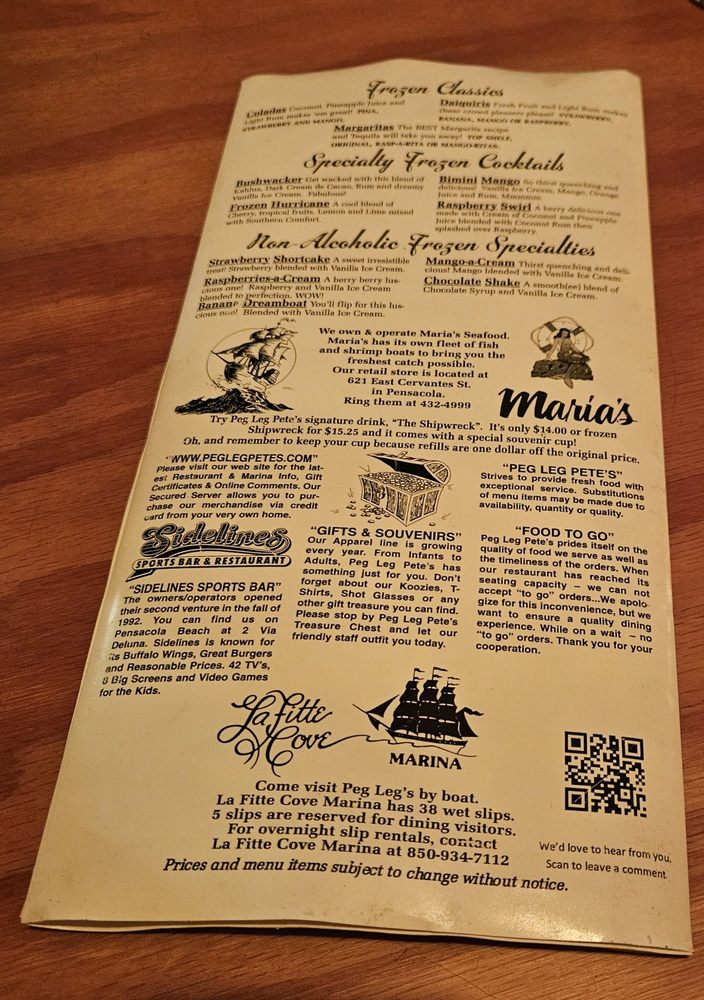 Frozen Classics
Coladas Coconut, Pineapple Juice and
Light Rum makes 'em great! PINA,
STRAWBERRY AND MANGO.
Daiquiris Fresh Fruit and Light Rum makes
these crowd pleasers please! STRAWBERRY,
BANANA, MANGO OR RASPBERRY.
Margaritas The BEST Margarita recipe
and Tequila will take you away! TOP SHELF,
ORIGINAL, RASP-A-RITA OR MANGO-RITAS.
Specialty Frozen Cocktails
Bushwacker Get wacked with this blend of
Kahlua, Dark Cream de Cacao, Rum and dreamy
Vanilla Ice Cream. Fabulous!
Frozen Hurricane A cool blend of
Cherry, tropical fruits, Lemon and Lime mixed
with Southern Comfort.
Bimini Mango So thirst quenching and
delicious! Vanilla Ice Cream, Mango, Orange
Juice and Rum, Mmmmm.
Raspberry Swirl A berry delicious one
made with Cream of Coconut and Pineapple
Juice blended with Coconut Rum then
splashed over Raspberry.
Non-Alcoholic Frozen Specialties
Strawberry Shortcake A sweet irresistible
treat! Strawberry blended with Vanilla Ice Cream.
Raspberries-a-Cream A berry berry lus-
cious one! Raspberry and Vanilla Ice Cream
blended to perfection. WOW!
Banana Dreamboat You'll flip for this lus-
cious one! Blended with Vanilla Ice Cream.
Mango-a-Cream Thirst quenching and deli-
cious! Mango blended with Vanilla Ice Cream.
Chocolate Shake A smooth(ee) blend of
Chocolate Syrup and Vanilla Ice Cream.
We own & operate Maria's Seafood.
Maria's has its own fleet of fish
and shrimp boats to bring you the
freshest catch possible.
Our retail store is located at
621 East Cervantes St.
in Pensacola.
Ring them at 432-4999
Maria's
Try Peg Leg Pete's signature drink, "The Shipwreck". It's only $14.00 or frozen
Shipwreck for $15.25 and it comes with a special souvenir cup!
Oh, and remember to keep your cup because refills are one dollar off the original price.
"WWW.PEGLEGPETES.COM"
Please visit our web site for the lat-
est Restaurant & Marina Info, Gift
Certificates & Online Comments. Our
Secured Server allows you to pur-
chase our merchandise via credit
card from your very own home.
Sidelines
SPORTS BAR & RESTAURANT
"SIDELINES SPORTS BAR"
The owners/operators opened
their second venture in the fall of
1992. You can find us on
Pensacola Beach at 2 Via
Deluna. Sidelines is known for
its Buffalo Wings, Great Burgers
and Reasonable Prices. 42 TV's,
8 Big Screens and Video Games
for the Kids.
"GIFTS & SOUVENIRS"
Our Apparel line is growing
every year. From Infants to
Adults, Peg Leg Pete's has
something just for you. Don't
forget about our Koozies, T-
Shirts, Shot Glasses or any
other gift treasure you can find.
Please stop by Peg Leg Pete's
Treasure Chest and let our
friendly staff outfit you today.
"PEG LEG PETE'S"
Strives to provide fresh food with
exceptional service. Substitutions
of menu items may be made due to
availability, quantity or quality.
"FOOD TO GO"
Peg Leg Pete's prides itself on the
quality of food we serve as well as
the timeliness of the orders. When
our restaurant has reached its
seating capacity – we can not
accept "to go" orders...We apolo-
gize for this inconvenience, but we
want to ensure a quality dining
experience. While on a wait – no
"to go" orders. Thank you for your
cooperation.
La Fitte
Cove
MARINA
Come visit Peg Leg's by boat.
La Fitte Cove Marina has 38 wet slips.
5 slips are reserved for dining visitors.
For overnight slip rentals, contact
La Fitte Cove Marina at 850-934-7112
Prices and menu items subject to change without notice.
We'd love to hear from you,
Scan to leave a comment